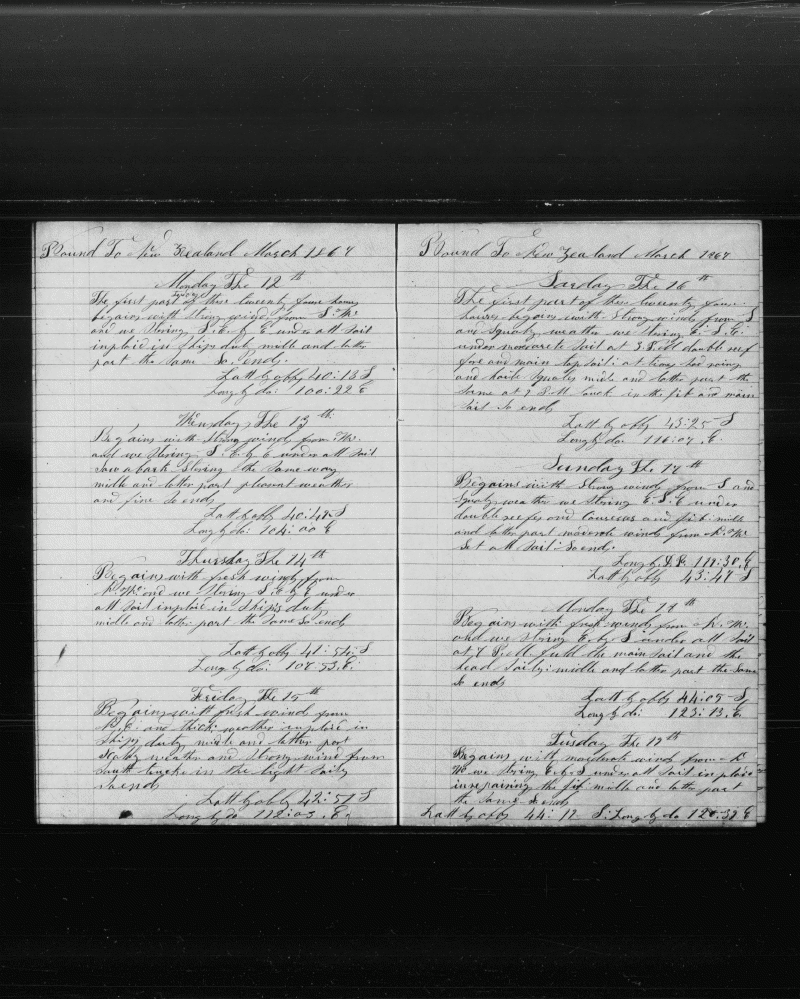 Bound To New Zealand March 1867
Monday The 12th
The first part of these twenty four hours
begains with strong winds from S. W.
and we string S. E. by E under all sail
inploid in ships duty midle and latter
part the same So ends.
Latt by obbs 40:13 S
Long by do: 100:22 E
Wensday The 13th
Begains with strong winds from W.
and we string S. E. by E under all sail
Saw a bark string the same way
midle and latter part plesent weather
and fine So ends
Latt by obbs 40:47 S
Long by do: 104:00 E
Thursday The 14th
Begains with fresh winds from
N. W. and we string S. E by E under
all sail inploid in ships duty
midle and latter part the same So ends
Latt by obbs 41:54 S
Long by do: 107:53 E.
Friday The 15th
Begains with fresh winds from
N. E. and thick weather inploid in
ships duty midle and latter part
weather and strong wind from
South tooke in the light sails
So ends
Latt by obbs 42:51 S
Long by do 112:03 E.
Bound To New Zealand March 1867
Sarday The 16th
The first part of these twenty four
houres begains with strong winds from S
and Squaly weather we string E. S. E.
under moderate sail at 3 P.M double reef
fore and main topsails at
and haile squales midle and latter part the
same at 7 P.M took in the jib and main
sail So ends
Latt by obbs 43:25 S
Long by do: 116:07 E.
Sunday The 17th
Begains with strong winds from S and
Squaly weather we string E. S. E under
double reefes and Courses and jib midle
and latter part moderate winds from N. W.
Set all sail: So ends.
Long by D.R. 118:30 E
Latt by obbs 43:47 S
Monday The 18th
Begains with fresh winds from N. W.
and we string E by S under all sail
at 7 P.M furld the main sail and the
sails: midle and latter part the same
So ends
Latt by obbs 44:05 S
Long by do: 123:13 E
Tusday The 19th
Begains with moderate winds from N.
W. we string E by S under all sail inploid
in repairing the jib midle and latter part
the same So ends
Latt by obbs 44:12 S. Long by do 128:32 E